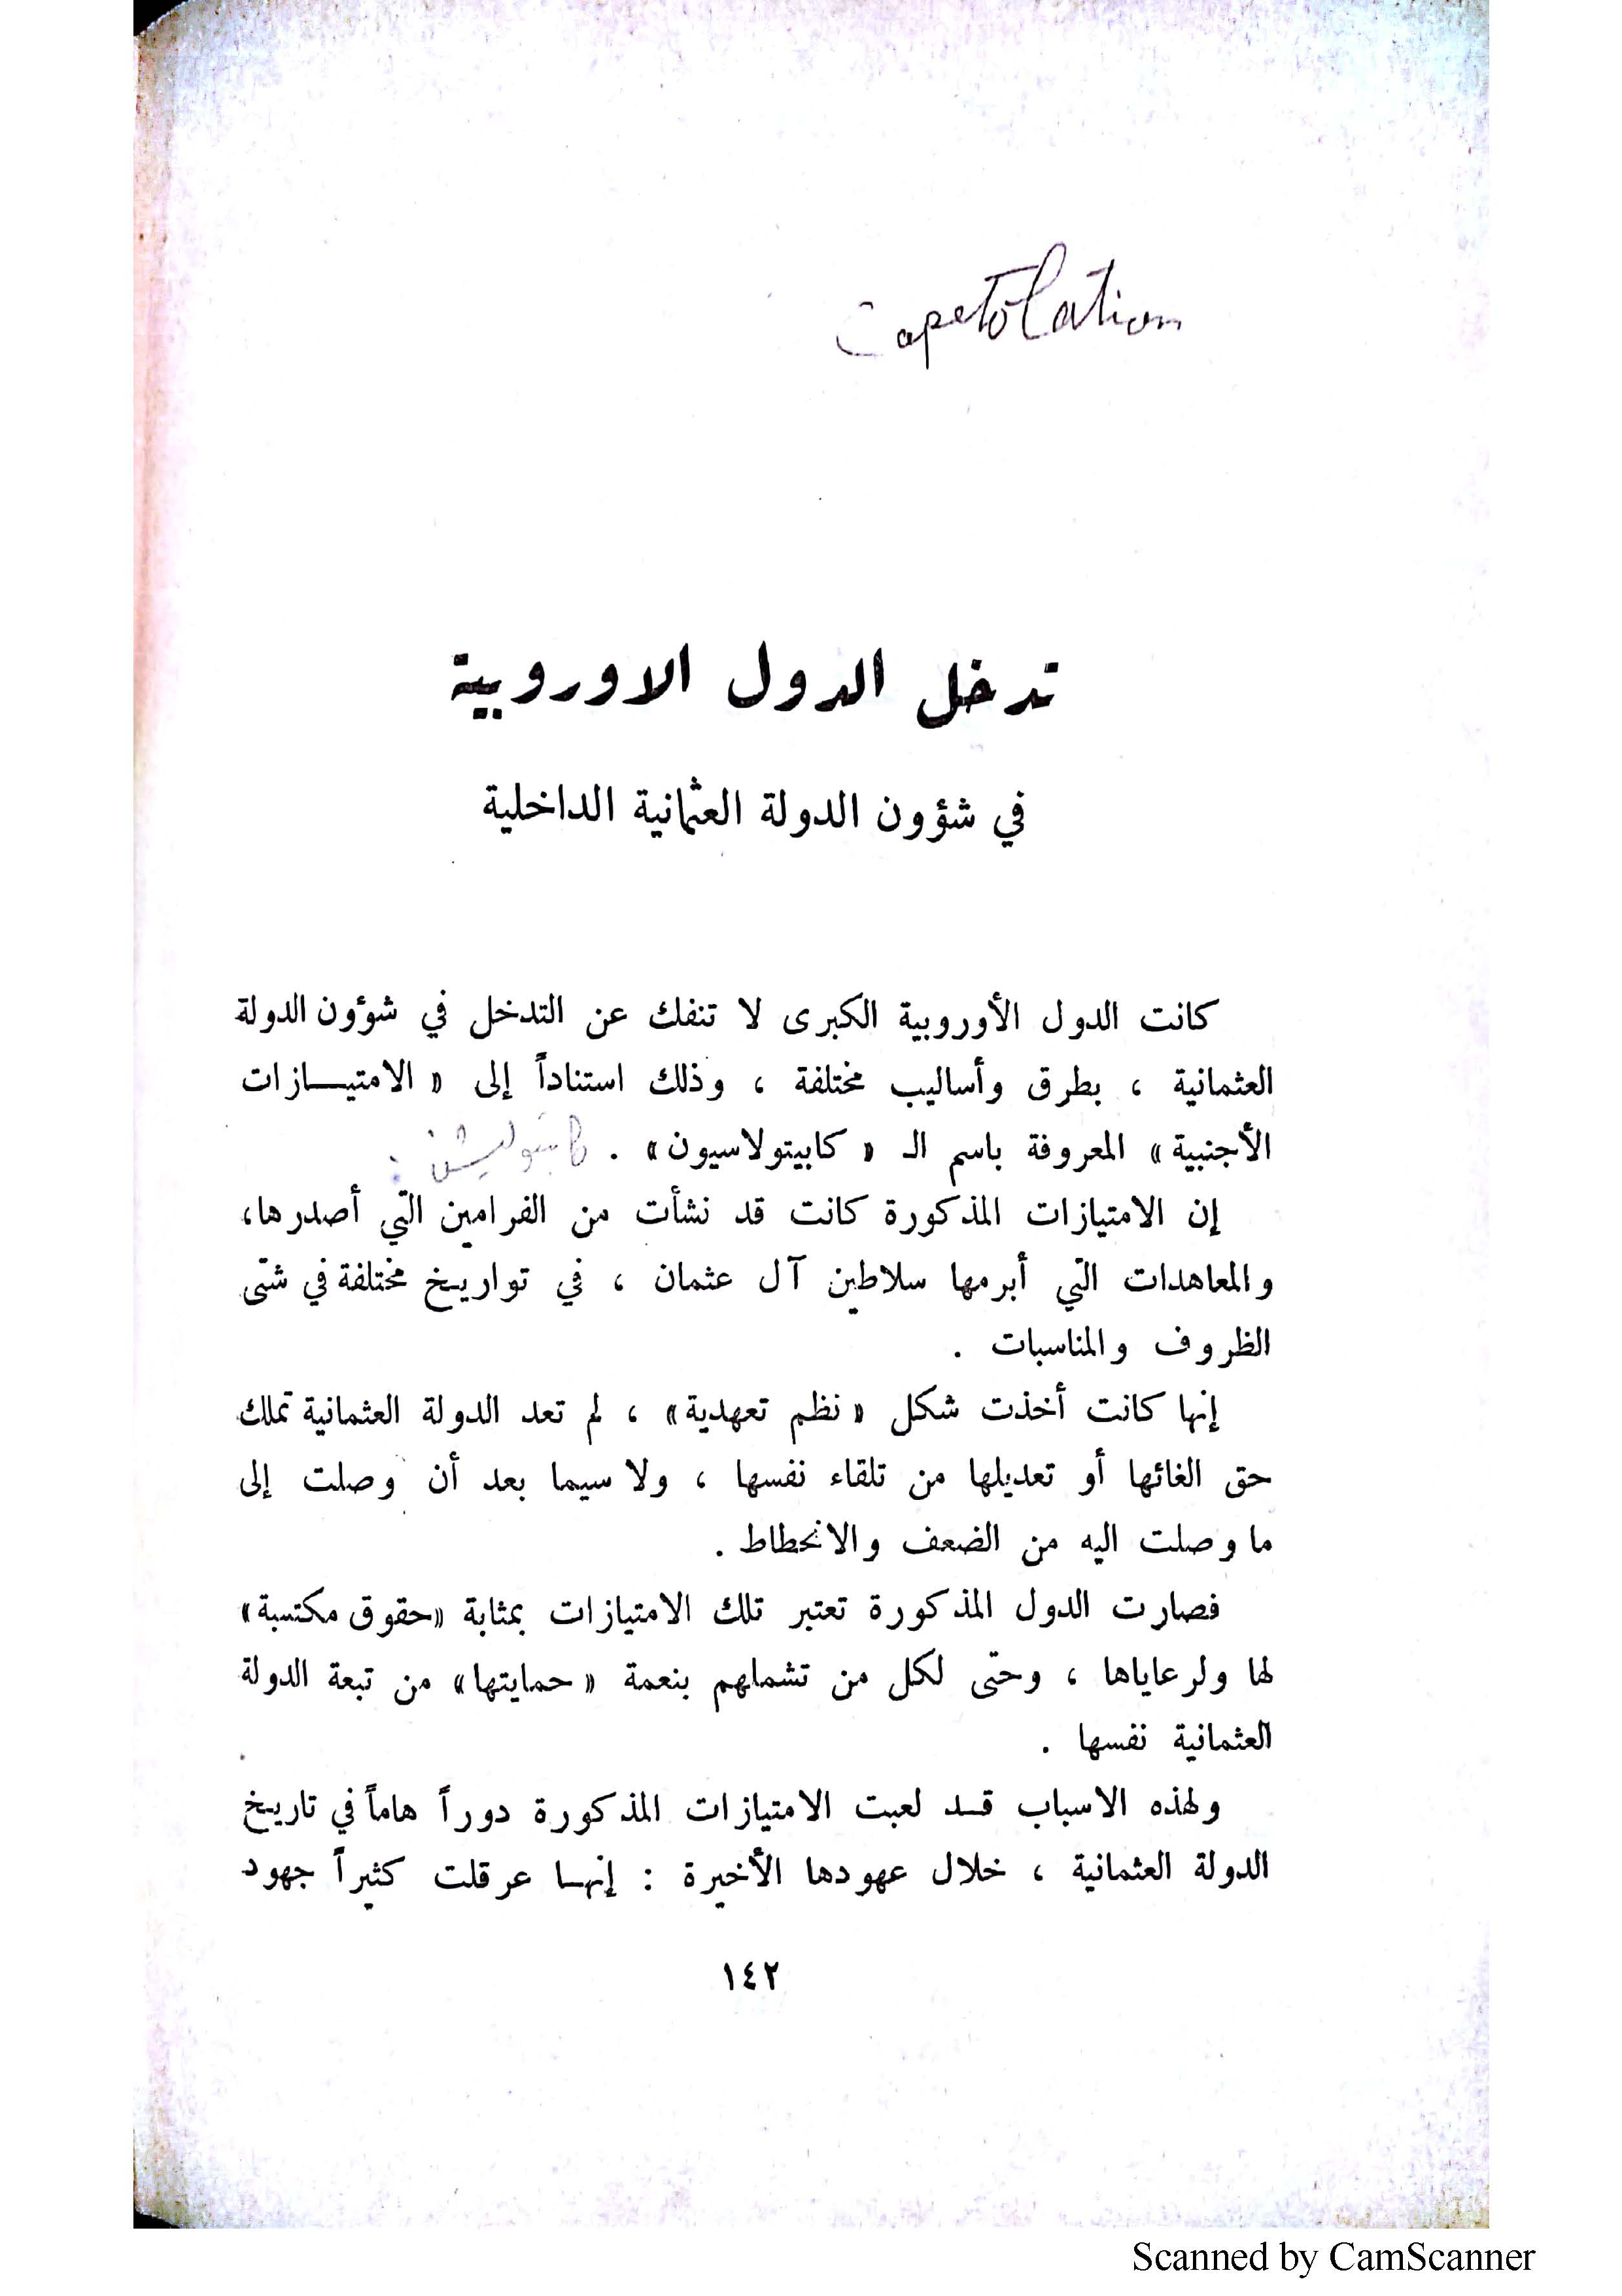 Capetolation
تدخل الدول الاوروبية
في شؤون الدولة العثمانية الداخلية
كانت الدول الأوروبية الكبرى لا تنفك عن التدخل في شؤون الدولة
العثمانية ، بطرق وأساليب مختلفة ، وذلك استناداً إلى « الامتيـــازات
الأجنبية » المعروفة باسم الـ « كابيتولاسيون » .
إن الامتيازات المذكورة كانت قد نشأت من الفرامين التي أصدرها،
والمعاهدات التي أبرمها سلاطين آل عثمان ، في تواريـخ مختلفة في شتى
الظروف والمناسبات .
إنها كانت أخذت شكل « نظم تعهدية » ، لم تعد الدولة العثمانية تملك
حق الغائها أو تعديلها من تلقاء نفسها ، ولا سيما بعد أن وصلت إلى
ما وصلت اليه من الضعف والانحطاط .
فصارت الدول المذكورة تعتبر تلك الامتيازات بمثابة «حقوق مكتسبة»
لها ولرعاياها ، وحتى لكل من تشملهم بنعمة « حمايتها » من تبعة الدولة
العثمانية نفسها .
ولهذه الاسباب قـد لعبت الامتيازات المذكورة دوراً هاماً في تاريـخ
الدولة العثمانية ، خلال عهودها الأخيرة : إنهـا عرقلت كثيراً جهود
١٤٢
Scanned by CamScanner